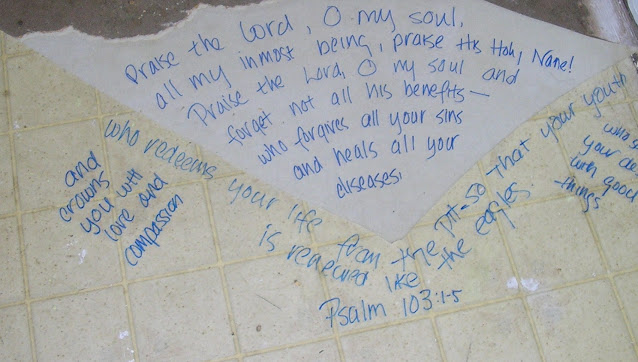 Praise the Lord, O my soul,
all my inmost being, praise His Holy Name!
Praise the Lord, O my soul and
forget not all his benefits—
who forgives all your sins
and heals all your
diseases,
who redeems your life from the pit-so that your youth
is renewed like the eagles
and
crowns
you with
love and
compassion
who
your
with good
things
Psalm 103:1-5